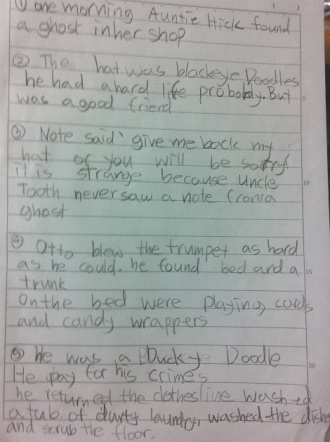 ① one morning Auntie Hick found
a ghost in her shop
② The hat was blackeye Doodles
he had a hard life probobly. But
was a good friend
③ Note said' give me back my
hat or you will be sorry
it is strange because uncle
Tooth never saw a note from a
ghost
④ Otto blew the trumpet as hard
as he could. he found bed and a
trunk
On the bed were playing cards
and candy wrappers
⑤ He was a Ducky Doodle
He pay for his crimes
he returned the clothesline washed
a tub of durty laundry, washed the dishe
and scrub the floor.